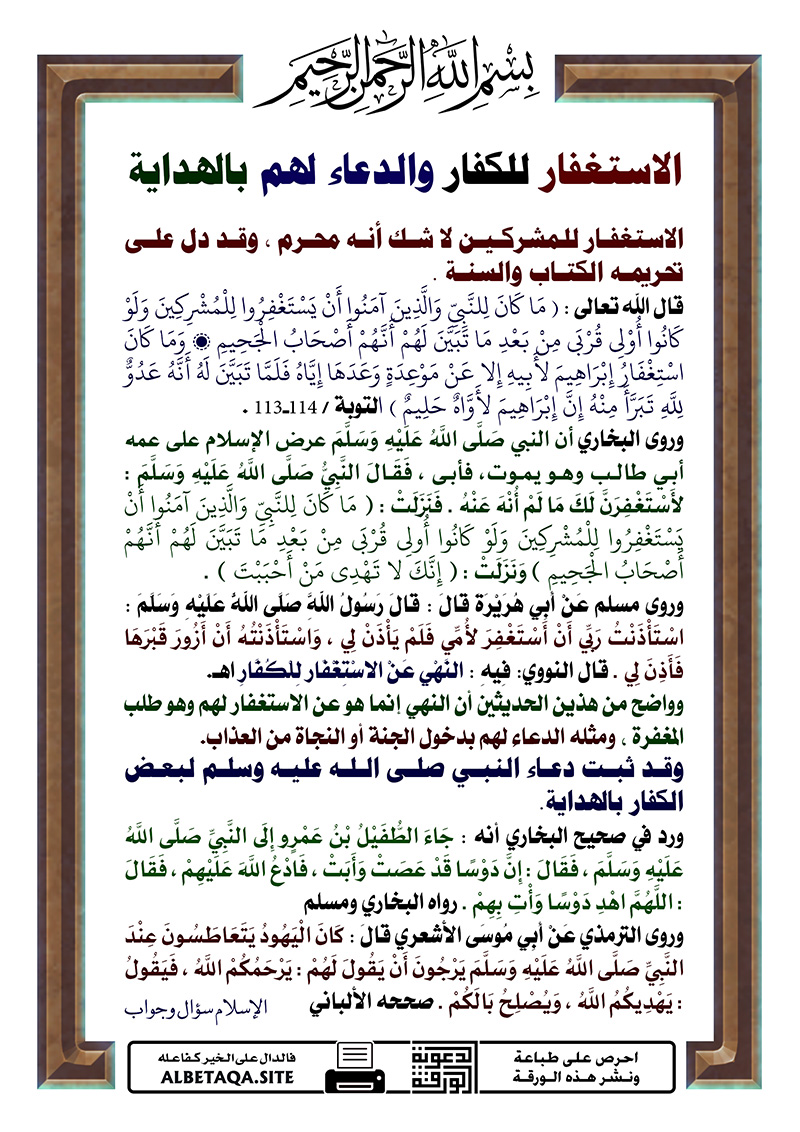 بِسْمِ اللَّهِ الرَّحْمَنِ الرَّحِيمِ
الاستغفار للكفار والدعاء لهم بالهداية
الاستغفار للمشركين لا شك أنه محرم ، وقد دل على
تحريمه الكتاب والسنة .
قال الله تعالى : ( مَا كَانَ لِلنَّبِيِّ وَالَّذِينَ آمَنُوا أَنْ يَسْتَغْفِرُوا لِلْمُشْرِكِينَ وَلَوْ
كَانُوا أُوْلِى قُرْبَى مِنْ بَعْدِ مَا تَبَيَّنَ لَهُمْ أَنَّهُمْ أَصْحَابُ الْجَحِيمِ ۞ وَمَا كَانَ
اسْتِغْفَارُ إِبْرَاهِيمَ لأَبِيهِ إِلا عَنْ مَوْعِدَةٍ وَعَدَهَا إِيَّاهُ فَلَمَّا تَبَيَّنَ لَهُ أَنَّهُ عَدُوٌّ
لِلَّهِ تَبَرَّأَ مِنْهُ إِنَّ إِبْرَاهِيمَ لأَوَّاهٌ حَلِيمٌ ) التوبة / 114ـ113 .
وروى البخاري أن النبي صَلَّى اللهُ عَلَيْهِ وَسَلَّمَ عرض الإسلام على عمه
أبي طالب وهو يموت، فأبى ، فَقَالَ النَّبِيُّ صَلَّى اللهُ عَلَيْهِ وَسَلَّمَ :
لأَسْتَغْفِرَنَّ لَكَ مَا لَمْ أُنْهَ عَنْهُ . فَنَزَلَتْ : ( مَا كَانَ لِلنَّبِيِّ وَالَّذِينَ آمَنُوا أَنْ
يَسْتَغْفِرُوا لِلْمُشْرِكِينَ وَلَوْ كَانُوا أُولِى قُرْبَى مِنْ بَعْدِ مَا تَبَيَّنَ لَهُمْ أَنَّهُمْ
أَصْحَابُ الْجَحِيمِ ) وَنَزَلَتْ : ( إِنَّكَ لا تَهْدِى مَنْ أَحْبَبْتَ ) .
وروى مسلم عَنْ أَبِي هُرَيْرَةَ قَالَ : قَالَ رَسُولُ اللَّهِ صَلَّى اللهُ عَلَيْهِ وَسَلَّمَ :
اسْتَأْذَنْتُ رَبِّي أَنْ أَسْتَغْفِرَ لأُمِّي فَلَمْ يَأْذَنْ لِي ، وَاسْتَأْذَنْتُهُ أَنْ أَزُورَ قَبْرَهَا
فَأَذِنَ لِي . قال النووي: فِيهِ : النَّهْي عَنْ الاسْتِغْفَار لِلْكُفَّارِ اهـ.
وواضح من هذين الحديثين أن النهي إنما هو عن الاستغفار لهم وهو طلب
المغفرة ، ومثله الدعاء لهم بدخول الجنة أو النجاة من العذاب.
وقد ثبت دعاء النبي صلى الله عليه وسلم لبعض
الكفار بالهداية.
ورد في صحيح البخاري أنه : جَاءَ الطُّفَيْلُ بْنُ عَمْرٍو إِلَى النَّبِيِّ صَلَّى اللَّهُ
عَلَيْهِ وَسَلَّمَ ، فَقَالَ : إِنَّ دَوْسًا قَدْ عَصَتْ وَأَبَتْ ، فَادْعُ اللَّهَ عَلَيْهِمْ ، فَقَالَ
: اللَّهُمَّ اهْدِ دَوْسًا وَأْتِ بِهِمْ . رواه البخاري ومسلم
وروى الترمذي عَنْ أَبِي مُوسَى الأشعري قَالَ : كَانَ الْيَهُودُ يَتَعَاطَسُونَ عِنْدَ
النَّبِيِّ صَلَّى اللَّهُ عَلَيْهِ وَسَلَّمَ يَرْجُونَ أَنْ يَقُولَ لَهُمْ : يَرْحَمُكُمْ اللَّهُ ، فَيَقُولُ
: يَهْدِيكُمُ اللَّهُ ، وَيُصْلِحُ بَالَكُمْ . صححه الألباني الإسلام سؤال وجواب
احرص على طباعة
ونشر هذه الورقة
الورقة الدعوية
فالدال على الخير كفاعله
ALBETAQA.SITE